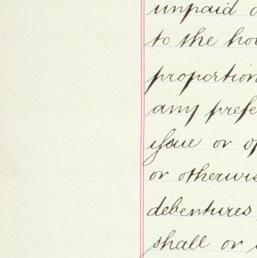 unpaid
to the
proportion
any
issue or
or otherwis
debentures
shall or